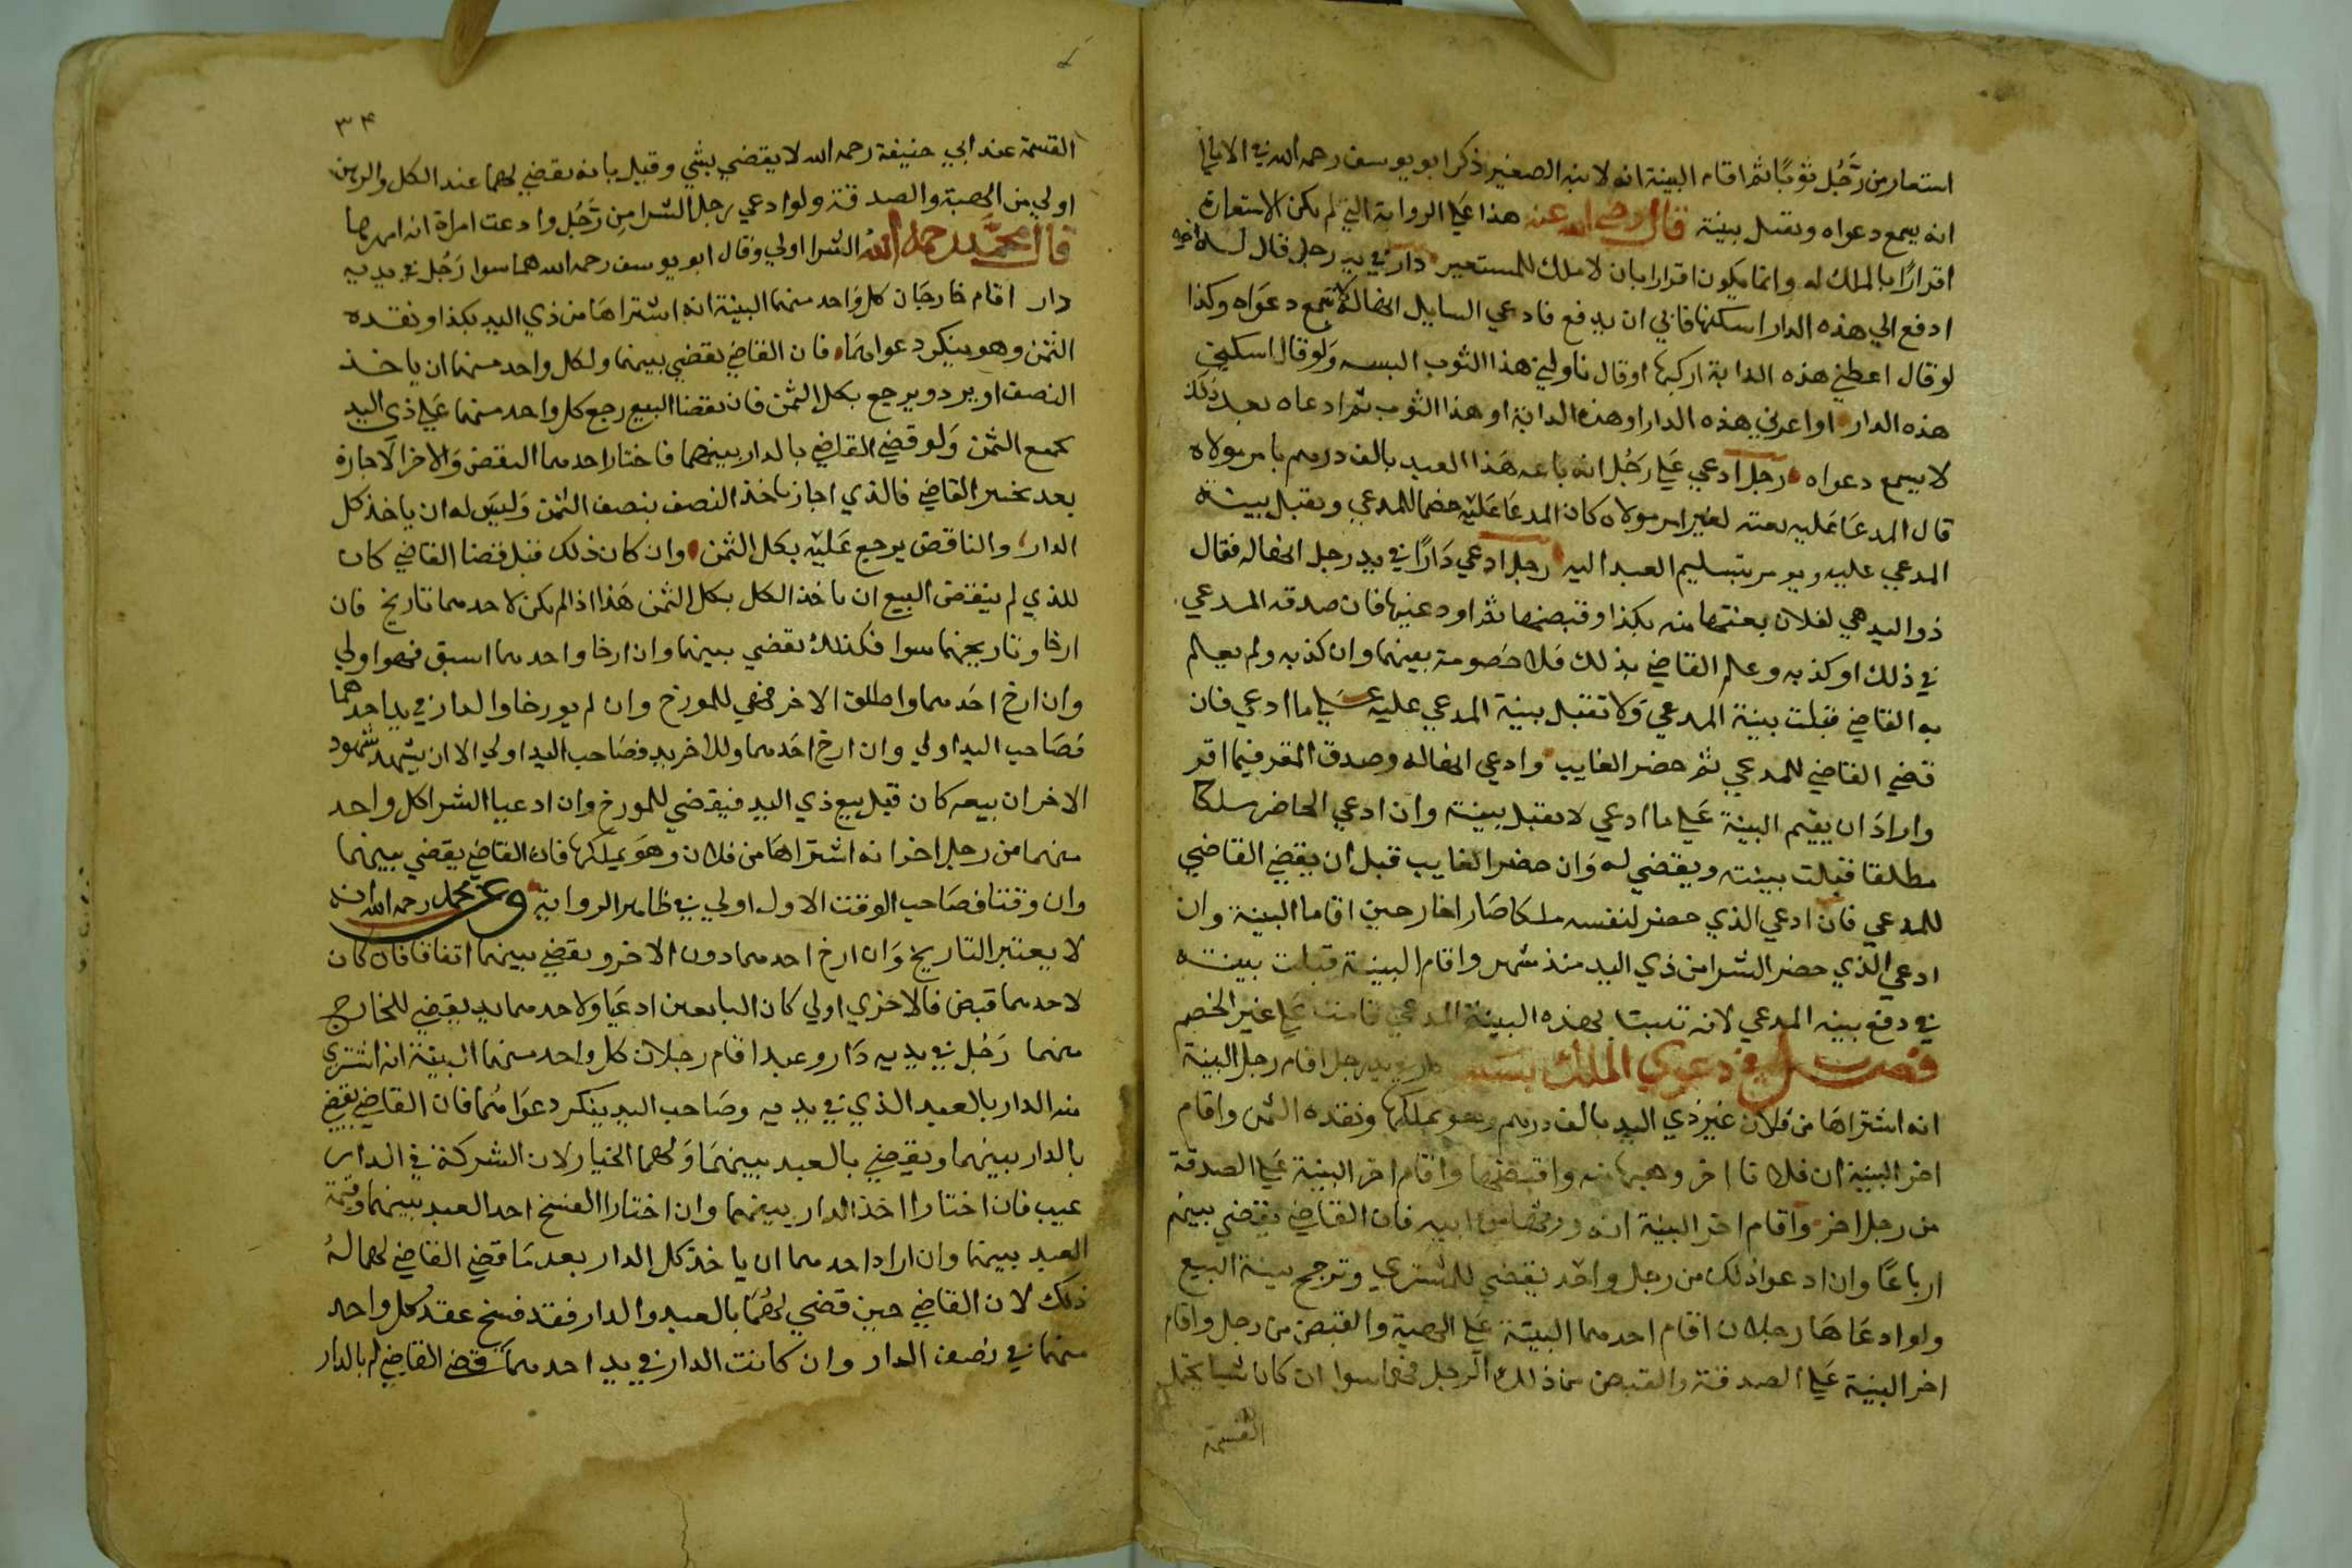 استعار من رَجُل ثوبًا ثم اقام البينة انه لابنه الصغير ذكر ابو يوسف رحمه الله في الامالي
انه يسمع دعواه وتقبل بينة قال رضي الله عنه هذا علي الرواية التي لم يكن الاستعارة
اقرارًا بالملك له وانما يكون اقرارا بان لا ملك للمستعير دار في يد رجل قال له اخر
ادفع الي هذه الدار اسكنها فابي ان يدفع فادعي السايل انها له تسمع دعواه وكذا
لو قال اعطني هذه الدابة اركبها او قال ناولني هذا الثوب البسه ولو قال اسكني
هذه الدار او اعرني هذه الدار او هذه الدابة او هذا الثوب ثم ادعاه بعد ذلك
لا يسمع دعواه رجل ادعي علي رَجُل انه باعه هذا العبد بالف درهم بامر مولاه
قال المدعا عليه بعته بغير امر مولاه كان المدعا عليه خصما للمدعي وتقبل بينة
المدعي عليه ويومر بتسليم العبد اليه رجل ادعي دارًا في يد رجل انها له فقال
ذو اليد هي لفلان بعتها منه بكذا وقبضها ثم اودعنيها فان صدقه المدعي
في ذلك او كذبه وعلم القاضي بذلك فلا خصومة بينهما وان كذبه ولم يعلم
به القاضي قبلت بينة المدعي ولا تقبل بينة المدعي عليه علي ما ادعي فان
قضي القاضي للمدعي ثم حضر الغايب وادعي انها له وصدق المقر فيما اقر
واراد ان يقيم البينة علي ما ادعي لا تقبل بينة وان ادعي الحاضر ملكا
مطلقا قبلت بينته ويقضي له وان حضر الغايب قبل ان يقضي القاضي
للمدعي فان ادعي الذي حضر لنفسه ملكا صارا خارجين اقاما البينة وان
ادعي الذي حضر الشرا من ذي اليد منذ شهر واقام البينة قبلت بينته
في دفع بينه المدعي لانه تثبت بهذه البينة المدعي قامت علي غير الخصم
فصل في دعوي الملك بسبب دار في يد رجل اقام رجل البينة
انه اشتراها من فلان غير ذي اليد بالف درهم وهو يملكها ونقده الثمن واقام
اخر البينة ان فلانا اخر وهبها منه واقبضها واقام اخر البينة علي الصدقة
من رجل اخر واقام اخر البينة انه ورثها من ابيه فان القاضي يقضي بينهم
ارباعًا وان ادعوا ذلك من رجل واحد يقضي للمشتري وترجح بينة البيع
ولو ادعاها رجلان اقام احدهما البينة علي الهبة والقبض من رجل واقام
اخر البينة علي الصدقة والقبض من ذلك الرجل فهما سوا ان كانا شيا يحتمل
القسمة
٣٤
القسمة عند ابي حنيفة رحمه الله لا يقضي بشي وقيل بانه يقضي لهما عند الكل والرهن
اولي من الهبة والصدقة ولو ادعي رجل الشرا من رَجُل وادعت امراة انه امهرها
قال محمد رحمه الله الشرا اولي وقال ابو يوسف رحمه الله هما سوا رَجُل في يديه
دار اقام خارجان كل واحد منهما البينة انه اشتراها من ذي اليد بكذا ونقده
الثمن وهو ينكر دعواهما فان القاضي يقضي بينهما ولكل واحد منهما ان ياخذ
النصف او يرد ويرجع بكل الثمن فان نقضا البيع رجع كل واحد منهما علي ذي اليد
بجميع الثمن ولو قضي القاضي بالدار بينهما فاختار احدهما النقض والاخر الاجازة
بعد تخيير القاضي فالذي اجاز ياخذ النصف بنصف الثمن وليس له ان ياخذ كل
الدار والناقض يرجع عليه بكل الثمن وان كان ذلك قبل قضا القاضي كان
للذي لم ينقض البيع ان ياخذ الكل بكل الثمن هذا اذا لم يكن لاحدهما تاريخ فان
ارخا وتاريخهما سوا فكذلك يقضي بينهما وان ارخا واحدهما اسبق فهو اولي
وان ارخ احدهما واطلق الاخر فهي للمورخ وان لم يورخا والدار في يد احدهما
فصاحب اليد اولي وان ارخ احدهما وللاخر يد فصاحب اليد اولي الا ان يشهد شهود
الاخر ان بيعه كان قبل بيع ذي اليد فيقضي للمورخ وان ادعيا الشرا كل واحد
منهما من رجل اخر انه اشتراها من فلان وهو يملكها فان القاضي يقضي بينهما
وان وقتا فصاحب الوقت الاول اولي في ظاهر الرواية وعن محمد رحمه الله انه
لا يعتبر التاريخ وان ارخ احدهما دون الاخر ويقضي بينهما اتفاقا فان كان
لاحدهما قبض فالاخري اولي كان البايعين ادعيا ولاحدهما يد يقضي للخارج
منهما رَجُل في يديه دار وعبد اقام رجلان كل واحد منهما البينة انه اشتري
منه الدار بالعبد الذي في يديه وصاحب اليد ينكر دعواهما فان القاضي يقضي
بالدار بينهما ويقضي بالعبد بينهما ولهما الخيار لان الشركة في الدار
عيب فان اختارا اخذ الدار بينهما وان اختارا الفسخ اخذ العبد بينهما وقيمة
العبد بينهما وان اراد احدهما ان ياخذ كل الدار بعد ما قضي القاضي لهما له
ذلك لان القاضي حين قضي لهما بالعبد والدار فقد فسخ عقد كل واحد
منهما في نصف الدار وان كانت الدار في يد احدهما قضي القاضي له بالدار